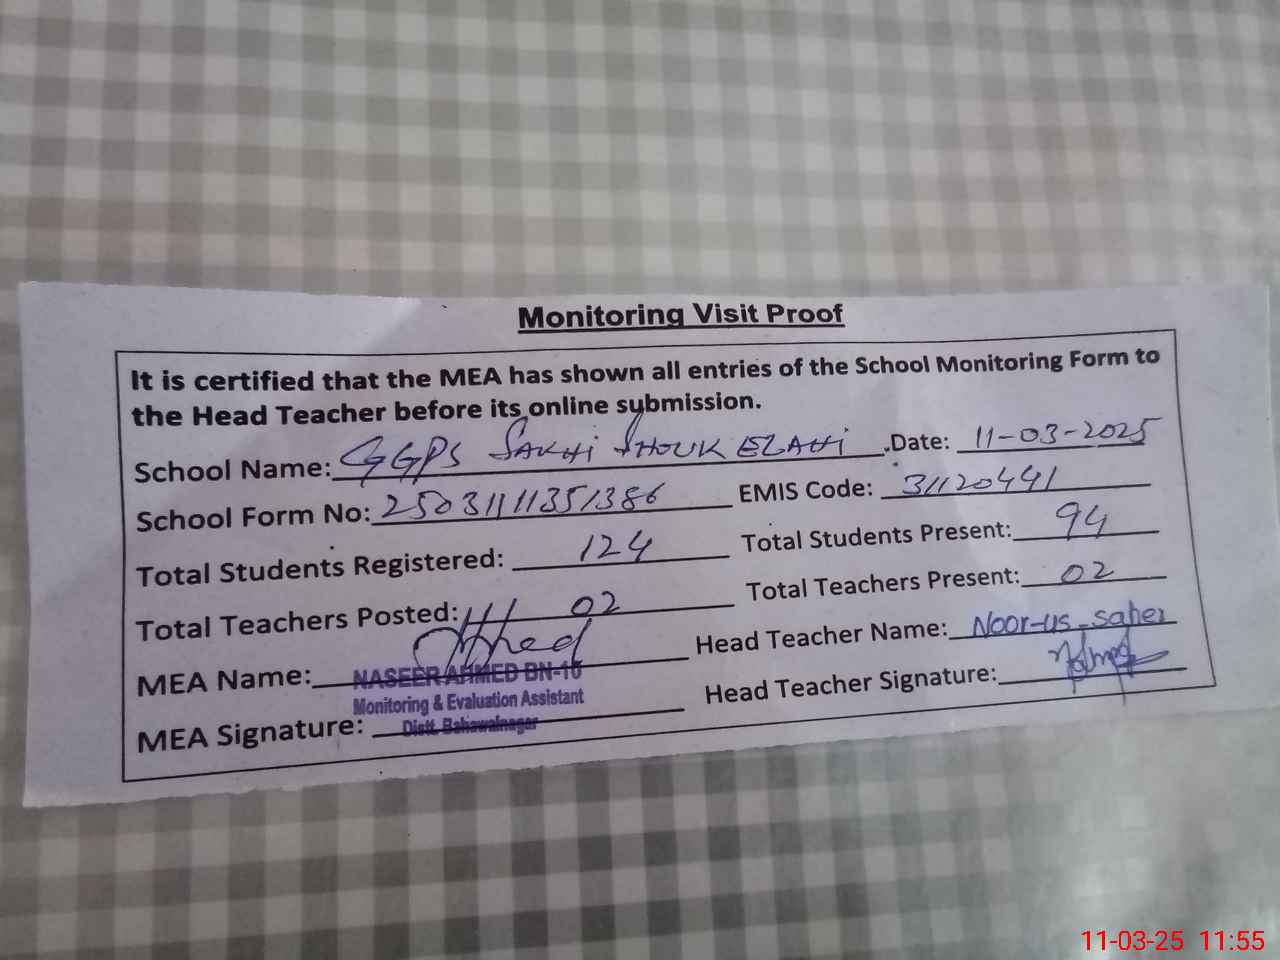 Monitoring Visit Proof
It is certified that the MEA has shown all entries of the School Monitoring Form to
the Head Teacher before its online submission.
School Name: GGPS SAKHI SHOUK ELAHI .Date: 11-03-2025
School Form No: 25031111351386 EMIS Code: 31120441
Total Students Registered: 124 Total Students Present: 94
Total Teachers Posted: 02 Total Teachers Present: 02
MEA Name: NASEER AHMED BN-10 Head Teacher Name: Noor-us-saher
Monitoring & Evaluation Assistant
MEA Signature: Distt. Bahawalnagar Head Teacher Signature:
11-03-25 11:55